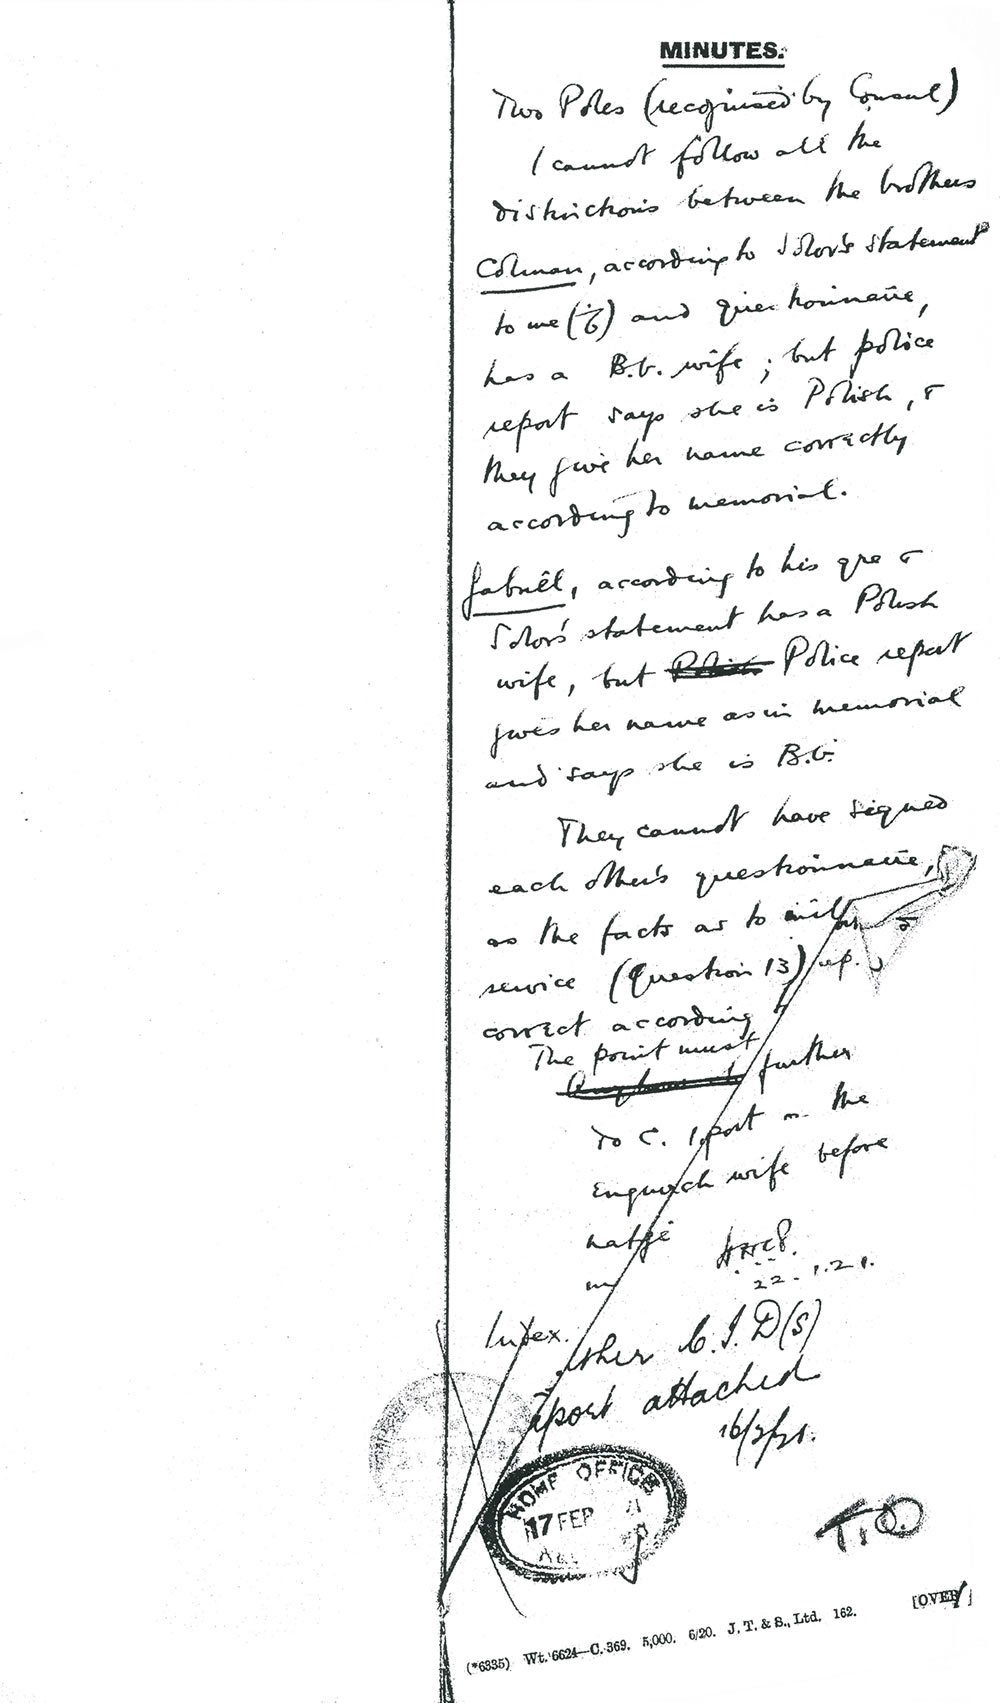 MINUTES.
Two Poles (recognised by Consul)
I cannot follow all the
distinctions between the brothers
Colman, according to Solor's statement
to me (/6) and questionnaire,
has a B.b. wife; but police
report says she is Polish, &
they give her name correctly
according to memorial.
Gabriel, according to his qre &
Solor's statement has a Polish
wife, but Police report
gives her name as in memorial
and says she is B.b.
They cannot have signed
each other's questionnaire,
as the facts as to
service (Question 13) rep.
correct according
The point must
further
To C. report on the
each wife before
22.1.21.
Index.
C.I.D(S)
report attached
16/2/21.
HOME OFFICE
17 FEB 21
T.O.
[OVER]
(*6335) Wt. 6624—C. 369. 5,000. 6/20. J. T. & S., Ltd. 162.